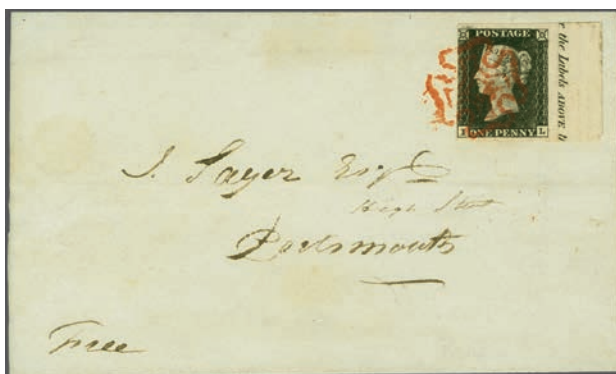 POSTAGE
ONE PENNY
I L
the Labels ABOVE
J. Sayer Esqr
High Street
Portsmouth
Free